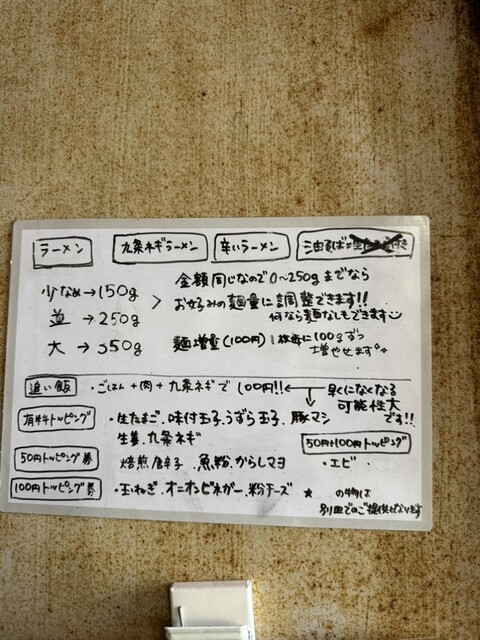 ラーメン 九条ネギラーメン 辛いラーメン 油そば
少なめ→150g
並→250g
大→350g
金額同じなので0~250gまでなら
お好みの麺量に調整できます!!
何なら麺なしもできます
麺増量(100円)1枚毎に100gずつ
増やせます
追い飯 ・ごはん+肉+九条ネギで100円!!← 早くになくなる
可能性大
です!!
有料トッピング ・生たまご、味付玉子、うずら玉子、豚マシ
生姜、九条ネギ
50円+100円トッピング
・エビ
50円トッピング券 焙煎唐辛子、魚粉、からしマヨ
100円トッピング券 ・玉ねぎ、オニオンビネガー、粉チーズ
★の物は
別皿でのご提供となります